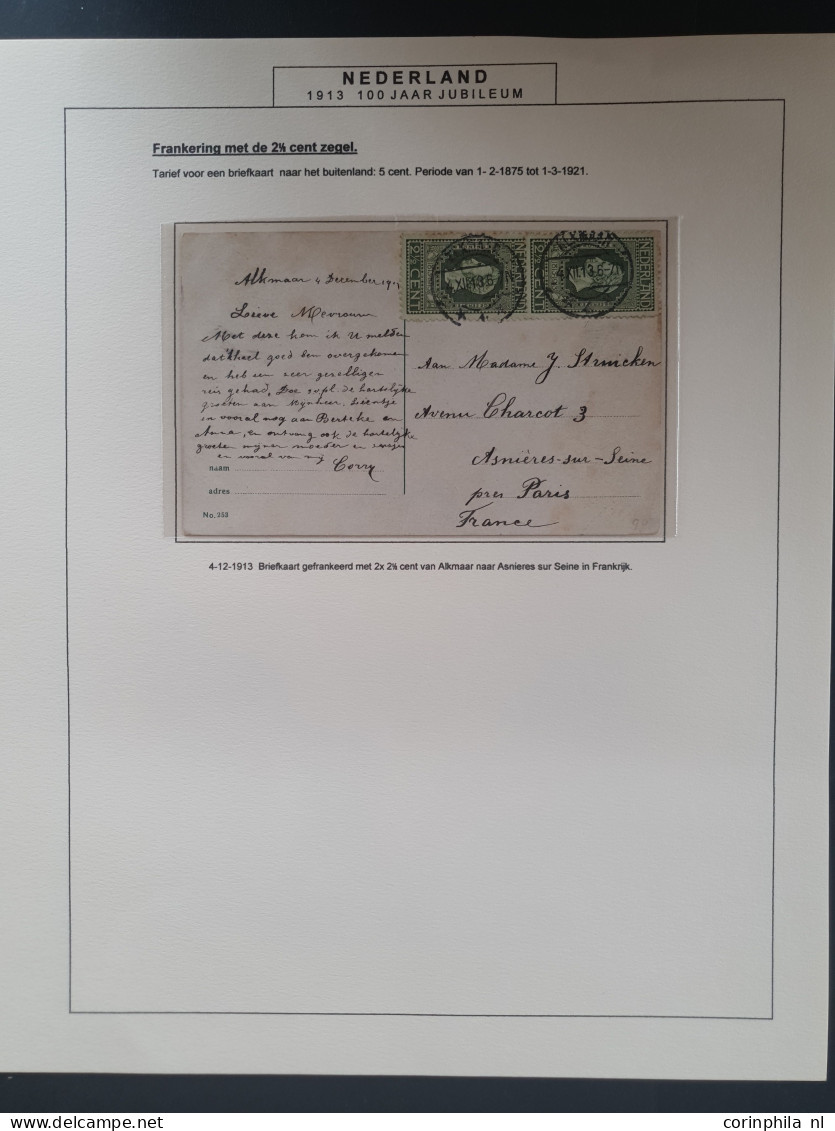 NEDERLAND
1913 100 JAAR JUBILEUM
Frankering met de 2½ cent zegel.
Tarief voor een briefkaart naar het buitenland: 5 cent. Periode van 1- 2-1875 tot 1-3-1921.
2½ CENT NEDERLAND
2½ CENT NEDERLAND
ALKMAAR
4 XII 13 6-7N
Alkmaar 4 December 191
Lieve Mevrouw
Met deze kom ik U melden
dat ik heel goed ben overgekomen
en heb een zeer gezelligen
reis gehad. Doe s.v.pl. de hartelijke
groeten aan Mijnheer, Leentje
en vooral nog aan Berteke en
Anna, en ontvang ook de hartelijke
groeten mijner moeder en
en vooral van mij
Corry
naam
adres
No. 253
Aan Madame J. Struicken
Avenu Charcot 3
Asnières-sur-Seine
pres Paris
France
4-12-1913 Briefkaart gefrankeerd met 2x 2½ cent van Alkmaar naar Asnieres sur Seine in Frankrijk.
www.corinphila.nl